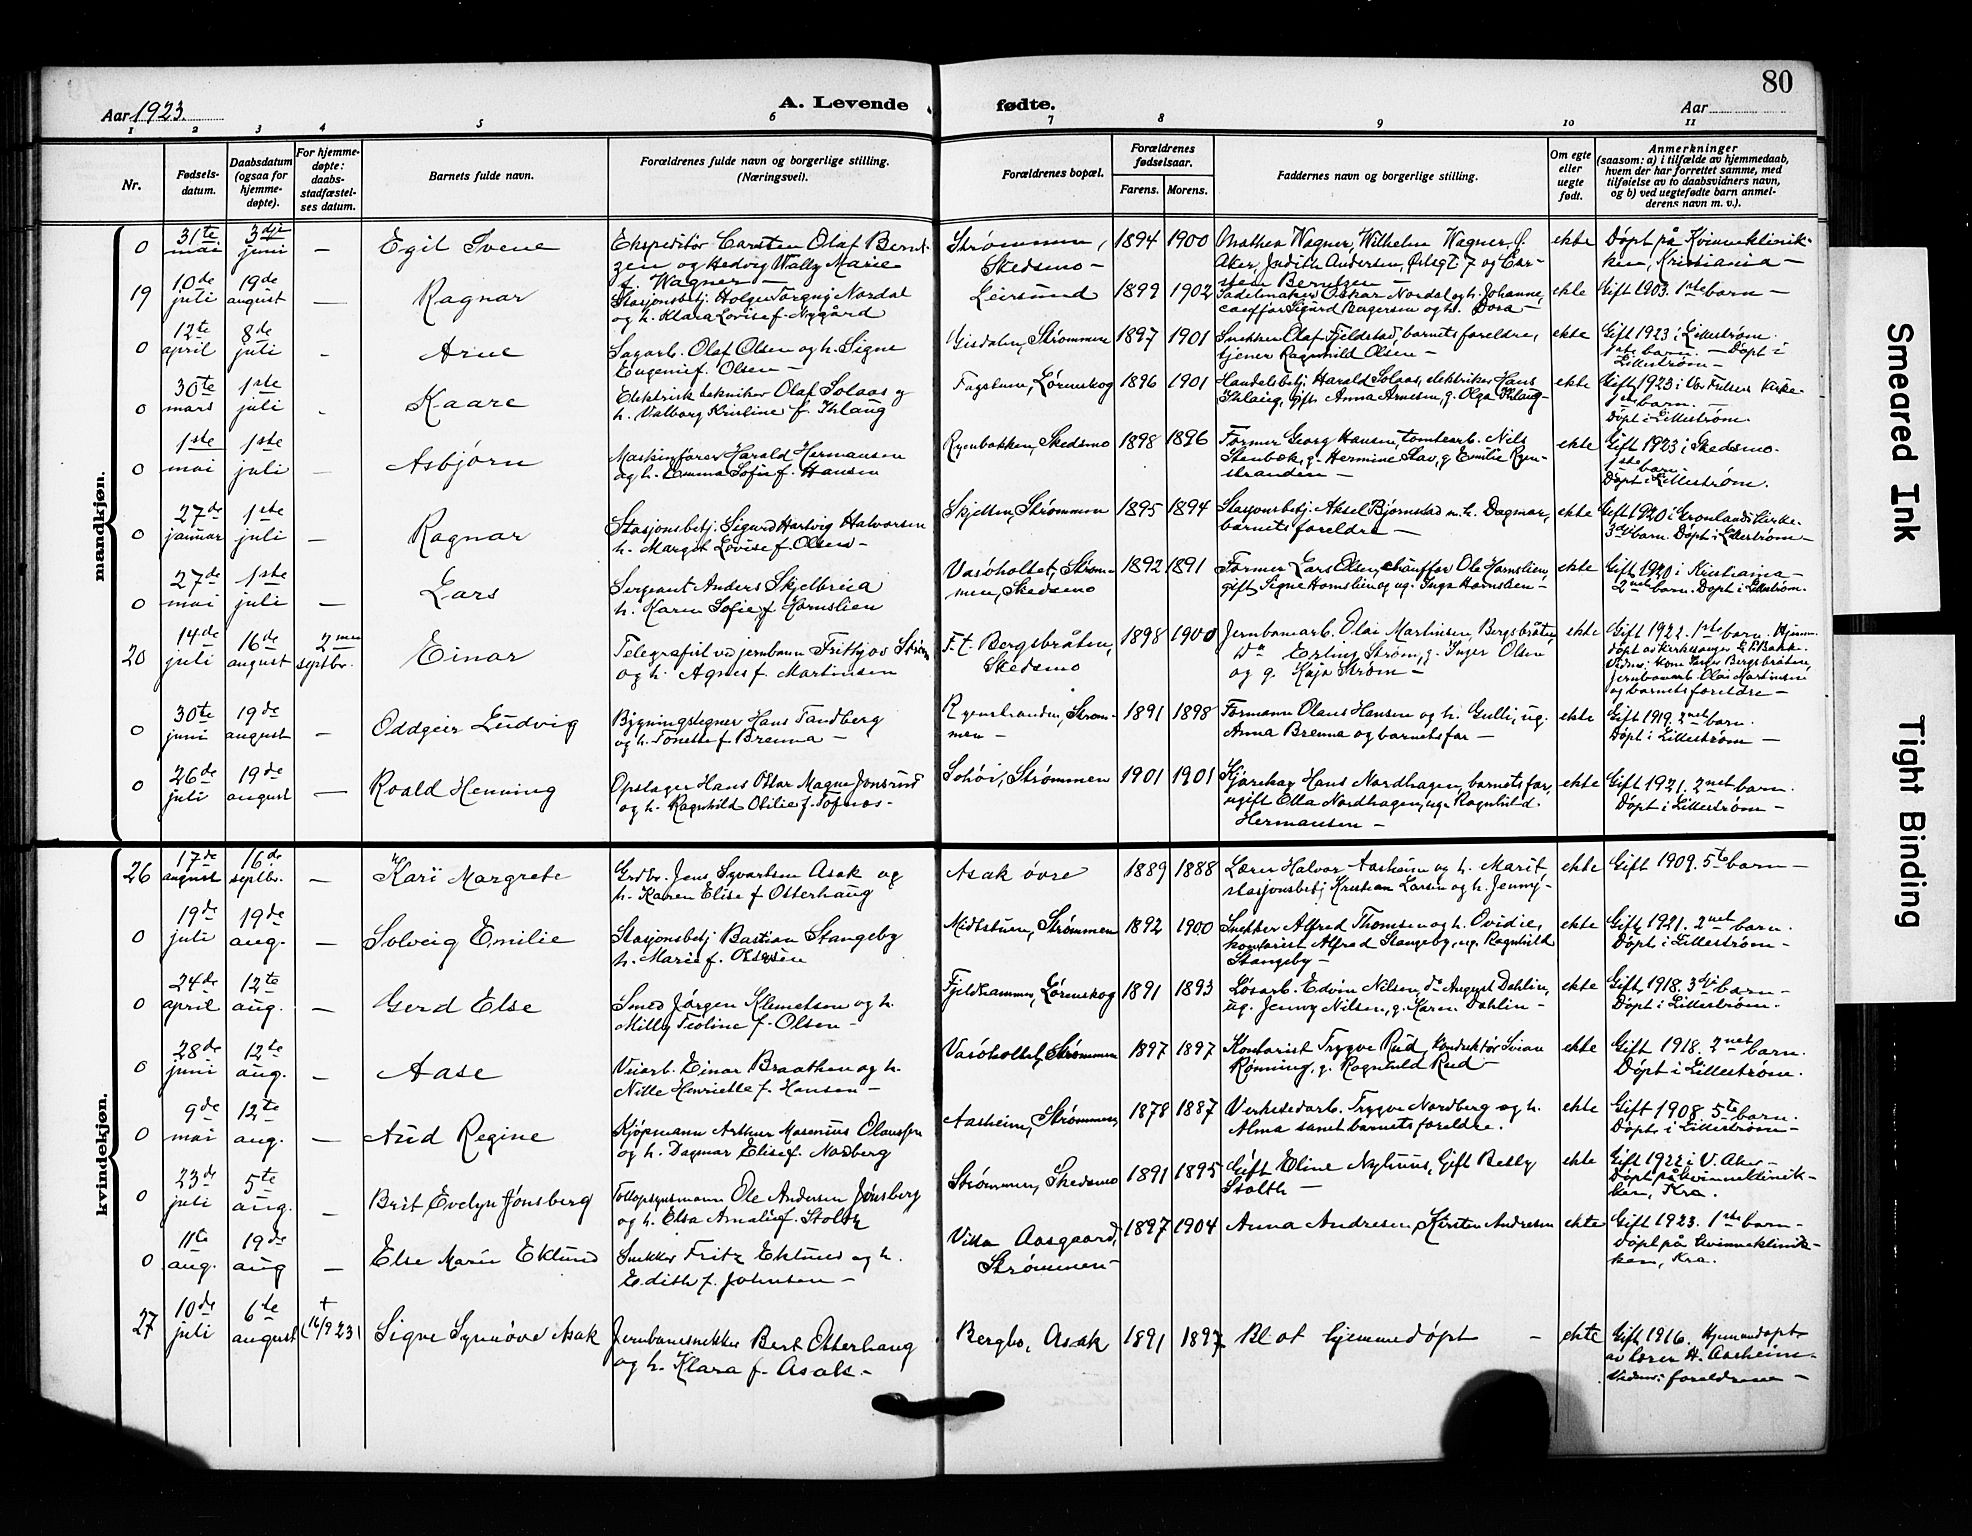 80
Aar 1923.
A. Levende fødte.
Aar
1 2 3 4 5 6 7 8 9 10 11
Nr.
Fødsels-
datum.
Daabsdatum
(ogsaa for
hjemme-
døpte).
For hjemme-
døpte:
daabs-
stadfæstel-
ses datum.
Barnets fulde navn.
Forældrenes fulde navn og borgerlige stilling.
(Næringsvei).
Forældrenes bopæl.
Forældrenes
fødselsaar.
Farens. Morens.
Faddernes navn og borgerlige stilling.
Om egte
eller
uegte
født.
Anmerkninger
(saasom: a) i tilfælde av hjemmedaab,
hvem der har forrettet samme, med
tilføielse av to daabsvidners navn,
og b) ved uegtefødte barn anmel-
derens navn m. v.).
mandkjøn.
0 31te mai 3dje juni — Egil Svene
Ekspeditør Carsten Olaf Bernt-
zen og Hedvig Wally Marie
f. Wagner —
Strømmen,
Skedsmo —
1894 1900
Mathea Wagner, Wilhelm Wagner, Ø.
Aker, Judith Andersen, Østgt. 7 og Car-
sten Berntzen —
ekte
Døpt på Kvinneklinik-
ken, Kristiania —
19 10de juli 19de august — Ragnar
Stasjonsbetj. Holger Torgny Nordal
og h. Klara Lovise f. Nygård
Leirsund
1899 1902
Sadelmaker Oskar Nordal og h. Johanne,
chauffør Sigurd Bergersen og h. Dora —
ekte
Gift 1903. 1ste barn —
0 12te april 8de juli - Arne
Sagarb. Olaf Olsen og h. Signe
Eugenie f. Olsen —
Gisdalen, Strømmen
1897 1901
Snekker Olaf Fjeldstad, barnets foreldre,
tjener Ragnhild Olsen —
ekte
Gift 1923 i Lillestrøm.
1ste barn. — Døpt i
Lillestrøm —
0 30te mars 1ste juli - Kaare
Elektrisk tekniker Olaf Solaas og
h. Valborg Kristine f. Ihlaug
Fagstuen, Lørenskog
1896 1901
Handelsbetj. Harald Solaas, elektriker Hans
Ihlaug, gift Anna Arnesen, g. Olga Ihlaug —
ekte
Gift 1923 i Vor Frelsers Kirke.
1ste barn. —
Døpt i Lillestrøm.
0 1ste mai 1ste juli — Asbjørn
Maskinfører Harald Hermansen
og h. Emma Sofie f. Hansen
Ryenbakken, Skedsmo
1898 1896
Former Georg Hansen, tomtearb. Nils
Stenbæk, g. Hermine Slav, g. Emilie Ryen-
stranden —
ekte
Gift 1923 i Skedsmo.
1ste barn.
Døpt i Lillestrøm.
0 27de januar 1ste juli — Ragnar
Stasjonsbetj. Sigurd Hartvig Halvorsen
h. Margit Lovise f. Olsen —
Skjetten, Strømmen
1895 1894
Stasjonsbetj. Aksel Bjørnstad m. h. Dagmar,
barnets foreldre —
ekte
Gift 1920 i Grønlands Kirke.
3dje barn. Døpt i Lillestrøm —
0 27de mai 1ste juli — Lars
Sergeant Anders Skjelbreia
h. Karen Sofie f. Hornslien
Vasøholtet, Strøm-
men, Skedsmo
1892 1891
Former Lars Olsen, chauffør Ole Hornslien,
gift Signe Hornslien og ug. Inga Hornslien —
ekte
Gift 1920 i Kristiania —
2net barn. Døpt i Lillestrøm.
20 14de juli 16de august 2nen septbr. Einar
Telegrafist ved jernbanen Fritthjov Strøm
og h. Agnes f. Martinsen
F. t. Bergsbråten,
Skedsmo
1898 1900
Jernbanearb. Olai Martinsen, Bergsbråten,
do Erling Strøm, g. Inger Olsen
og g. Kaja Strøm —
ekte
Gift 1922. 1ste barn. Hjem-
døpt av kirkesanger
Bergsbråten,
Jernbanearb. Olai Martinsen
og barnets foreldre —
0 30te juni 19de august — Oddgeir Ludvig
Bygningstegner Hans Tandberg
og h. Tonette f. Brenna —
Ryenstranden, Strøm-
men —
1891 1898
Formann Olaus Hansen og h. Gulli, ug.
Anna Brenna og barnets far —
ekte
Gift 1919. 2net barn.
Døpt i Lillestrøm —
0 26de juli 19de august — Roald Henning
Opslager Hans Oskar Magne Jonsrud
og h. Ragnhild Otilie f. Tofnæs —
Solhøi, Strømmen
1901 1901
Kjørekar Hans Nordhagen, barnets far,
ugift Ella Nordhagen, ug. Ragnhild
Hermansen —
ekte
Gift 1921. 2net barn.
Døpt i Lillestrøm —
kvindekjøn.
26 17de august 16de septbr. — Kari Margrete
Grdbr. Jens Syvertsen Asak og
h. Karen Elise f. Østerhaug
Asak øvre
1889 1888
Lærer Halvor Aasheim og h. Marit,
stasjonsbetj. Kristian Larsen og h. Jenny —
ekte
Gift 1909. 5te barn —
0 19de juli 19de aug. — Solveig Emilie
Stasjonsbetj. Bastian Stangeby
h. Marie f. Olsen
Midtstuen, Strømmen
1892 1900
Snekker Alfred Thomsen og h. Ovidie,
kontorist Alfred Stangeby, ug. Ragnhild
Stangeby —
ekte
Gift 1921. 2net barn.
Døpt i Lillestrøm —
0 24de april 12te aug. — Gerd Else
Smed Jørgen Klemetsen og h.
Milly Teoline f. Olsen —
Fjeldhammer, Lørenskog
1891 1893
Løsarb. Edvin Nilsen, do August Dahlin,
ug. Jenny Nilsen, g. Karen Dahlin —
ekte
Gift 1918. 3dje barn —
Døpt i Lillestrøm.
0 28de juni 12te aug. — Aase
Veiarb. Einar Braathen og h.
Nille Henriette f. Hansen —
Vasøholtet, Strømmen
1897 1897
Kontorist Trygve Rud, konduktør Svian
Rønning, g. Ragnhild Rud —
ekte
Gift 1918. 2net barn.
Døpt i Lillestrøm.
0 9de mai 12te aug. — Aud Regine
Kjøpmann Arthur Marenius Olaussen
og h. Dagmar Elise f. Nordberg
Aasheim, Strømmen
1878 1887
Verkstedarb. Trygve Nordberg og h.
Alma samt barnets foreldre.
ekte
Gift 1908. 5te barn.
Døpt i Lillestrøm —
0 23de juli 5te aug. — Brit Evelyn Jønsberg
Tollopsynsmann Ole Andersen Jønsberg
og h. Elsa Amalie f. Stoltz
Strømmen, Skedsmo
1891 1895
Gift Eline Nyhuus, Gift Betty
Stolth —
ekte
Gift 1922 i V. Aker —
Døpt på Kvinneklinik-
ken, Kra.
0 11te aug. 19de aug — Else Marie Eklund
Snekker Fritz Eklund og h.
Edith f. Johnsen —
Villa Aasgaard,
Strømmen —
1897 1904
Anna Andresen, Kirsten Andresen
ekte
Gift 1923. 1ste barn —
Døpt på Kvinneklinik-
ken, Kra.
27 10de juli 6te august († 16/9 23) Signe Synnøve Asak
Jernbanesnekker Bert Østerhaug
og h. Klara f. Asak —
Bergbo, Asak
1891 1897
Blot hjemmedøpt —
ekte
Gift 1916. Hjemmedøpt
av lærer H. Aasheim —
Vidner: foreldrene —
Smeared Ink
Tight Binding